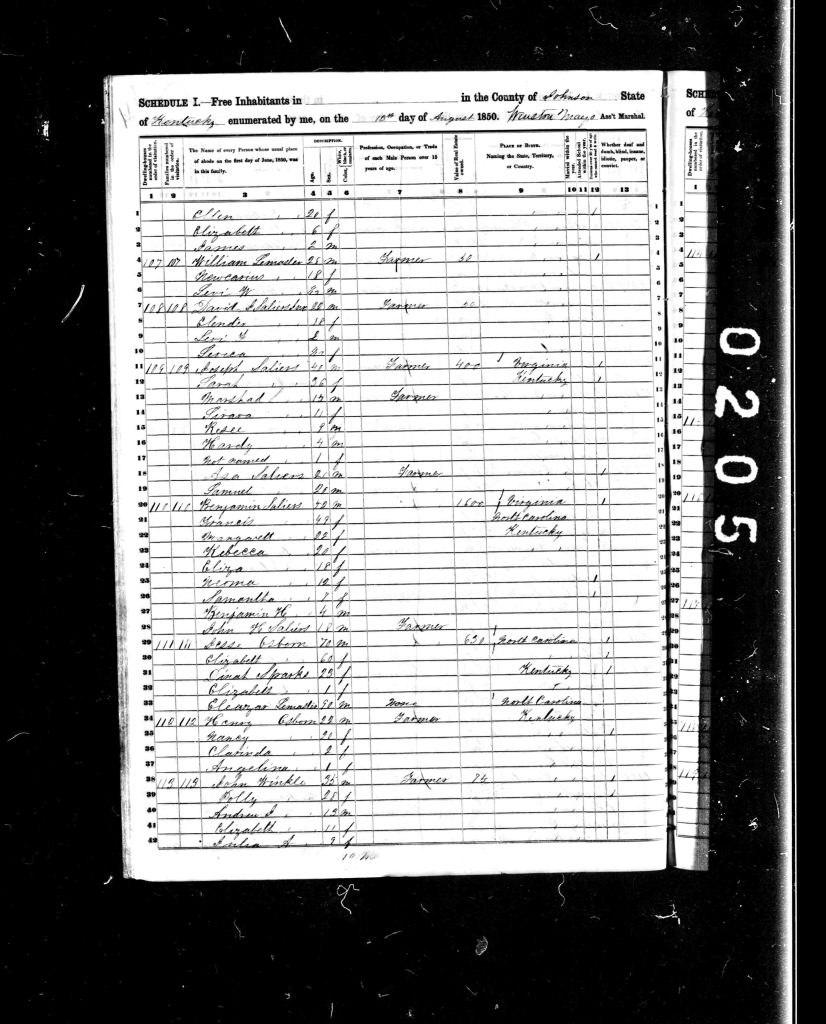 SCHEDULE I.—Free Inhabitants in in the County of Johnson State
of Kentucky enumerated by me, on the 10th day of August 1850. Winston Mayo Ass't Marshal.
Dwelling-houses numbered in the order of visitation.
Families numbered in the order of visitation.
The Name of every Person whose usual place of abode on the first day of June, 1850, was in this family.
DESCRIPTION.
Age.
Sex.
Color, White, black, or mulatto.
Profession, Occupation, or Trade of each Male Person over 15 years of age.
Value of Real Estate owned.
PLACE OF BIRTH. Naming the State, Territory, or Country.
Married within the year.
Attended School within the year.
Whether deaf and dumb, blind, insane, idiotic, pauper, or convict.
1 2 3 4 5 6 7 8 9 10 11 12 13
1 Ellen 20 f 1
2 Elizabeth 6 f 2
3 James 2 m 3
4 107 107 William Lemaster 25 m Farmer 50 4
5 18 f 5
6 Levi W m 6
7 108 108 David Saliers m Farmer 7
8 Clender 18 f 8
9 Levi 2 m 9
10 f 10
11 109 109 Joseph Saliers 40 m Farmer 400 Virginia 11
12 Sarah 36 f Kentucky 12
13 Marshad m Farmer 13
14 11 f 14
15 9 m 15
16 Hardy 4 m 16
17 Not named 1 f 17
18 Asa Saliers m Farmer 18
19 Samuel 20 m 19
20 110 110 Benjamin Saliers m 1600 Virginia 20
21 Francis 49 f North Carolina 21
22 Margarett 22 f Kentucky 22
23 Rebecca 20 f 23
24 Eliza 18 f 24
25 Neoma 12 f 25
26 Samantha 7 f 26
27 Benjamin H 4 m 27
28 John Saliers 18 m Farmer 28
29 111 111 Jesse Osborn 70 m 630 North Carolina 29
30 Elizabeth 60 f 30
31 Sparks 22 f Kentucky 31
32 Elizabeth 1 f 32
33 Eleazar Lemaster 90 m None North Carolina 33
34 110 112 Henry Osborn 22 m Farmer Kentucky 34
35 Nancy 20 f 35
36 Clarinda 2 f 36
37 Angelina 1 f 37
38 113 113 John Winkle 35 m Farmer 74 38
39 Polly 28 f 39
40 Andrew J 13 m 40
41 Elizabeth 11 f 41
42 Julia A 9 f 42
0205